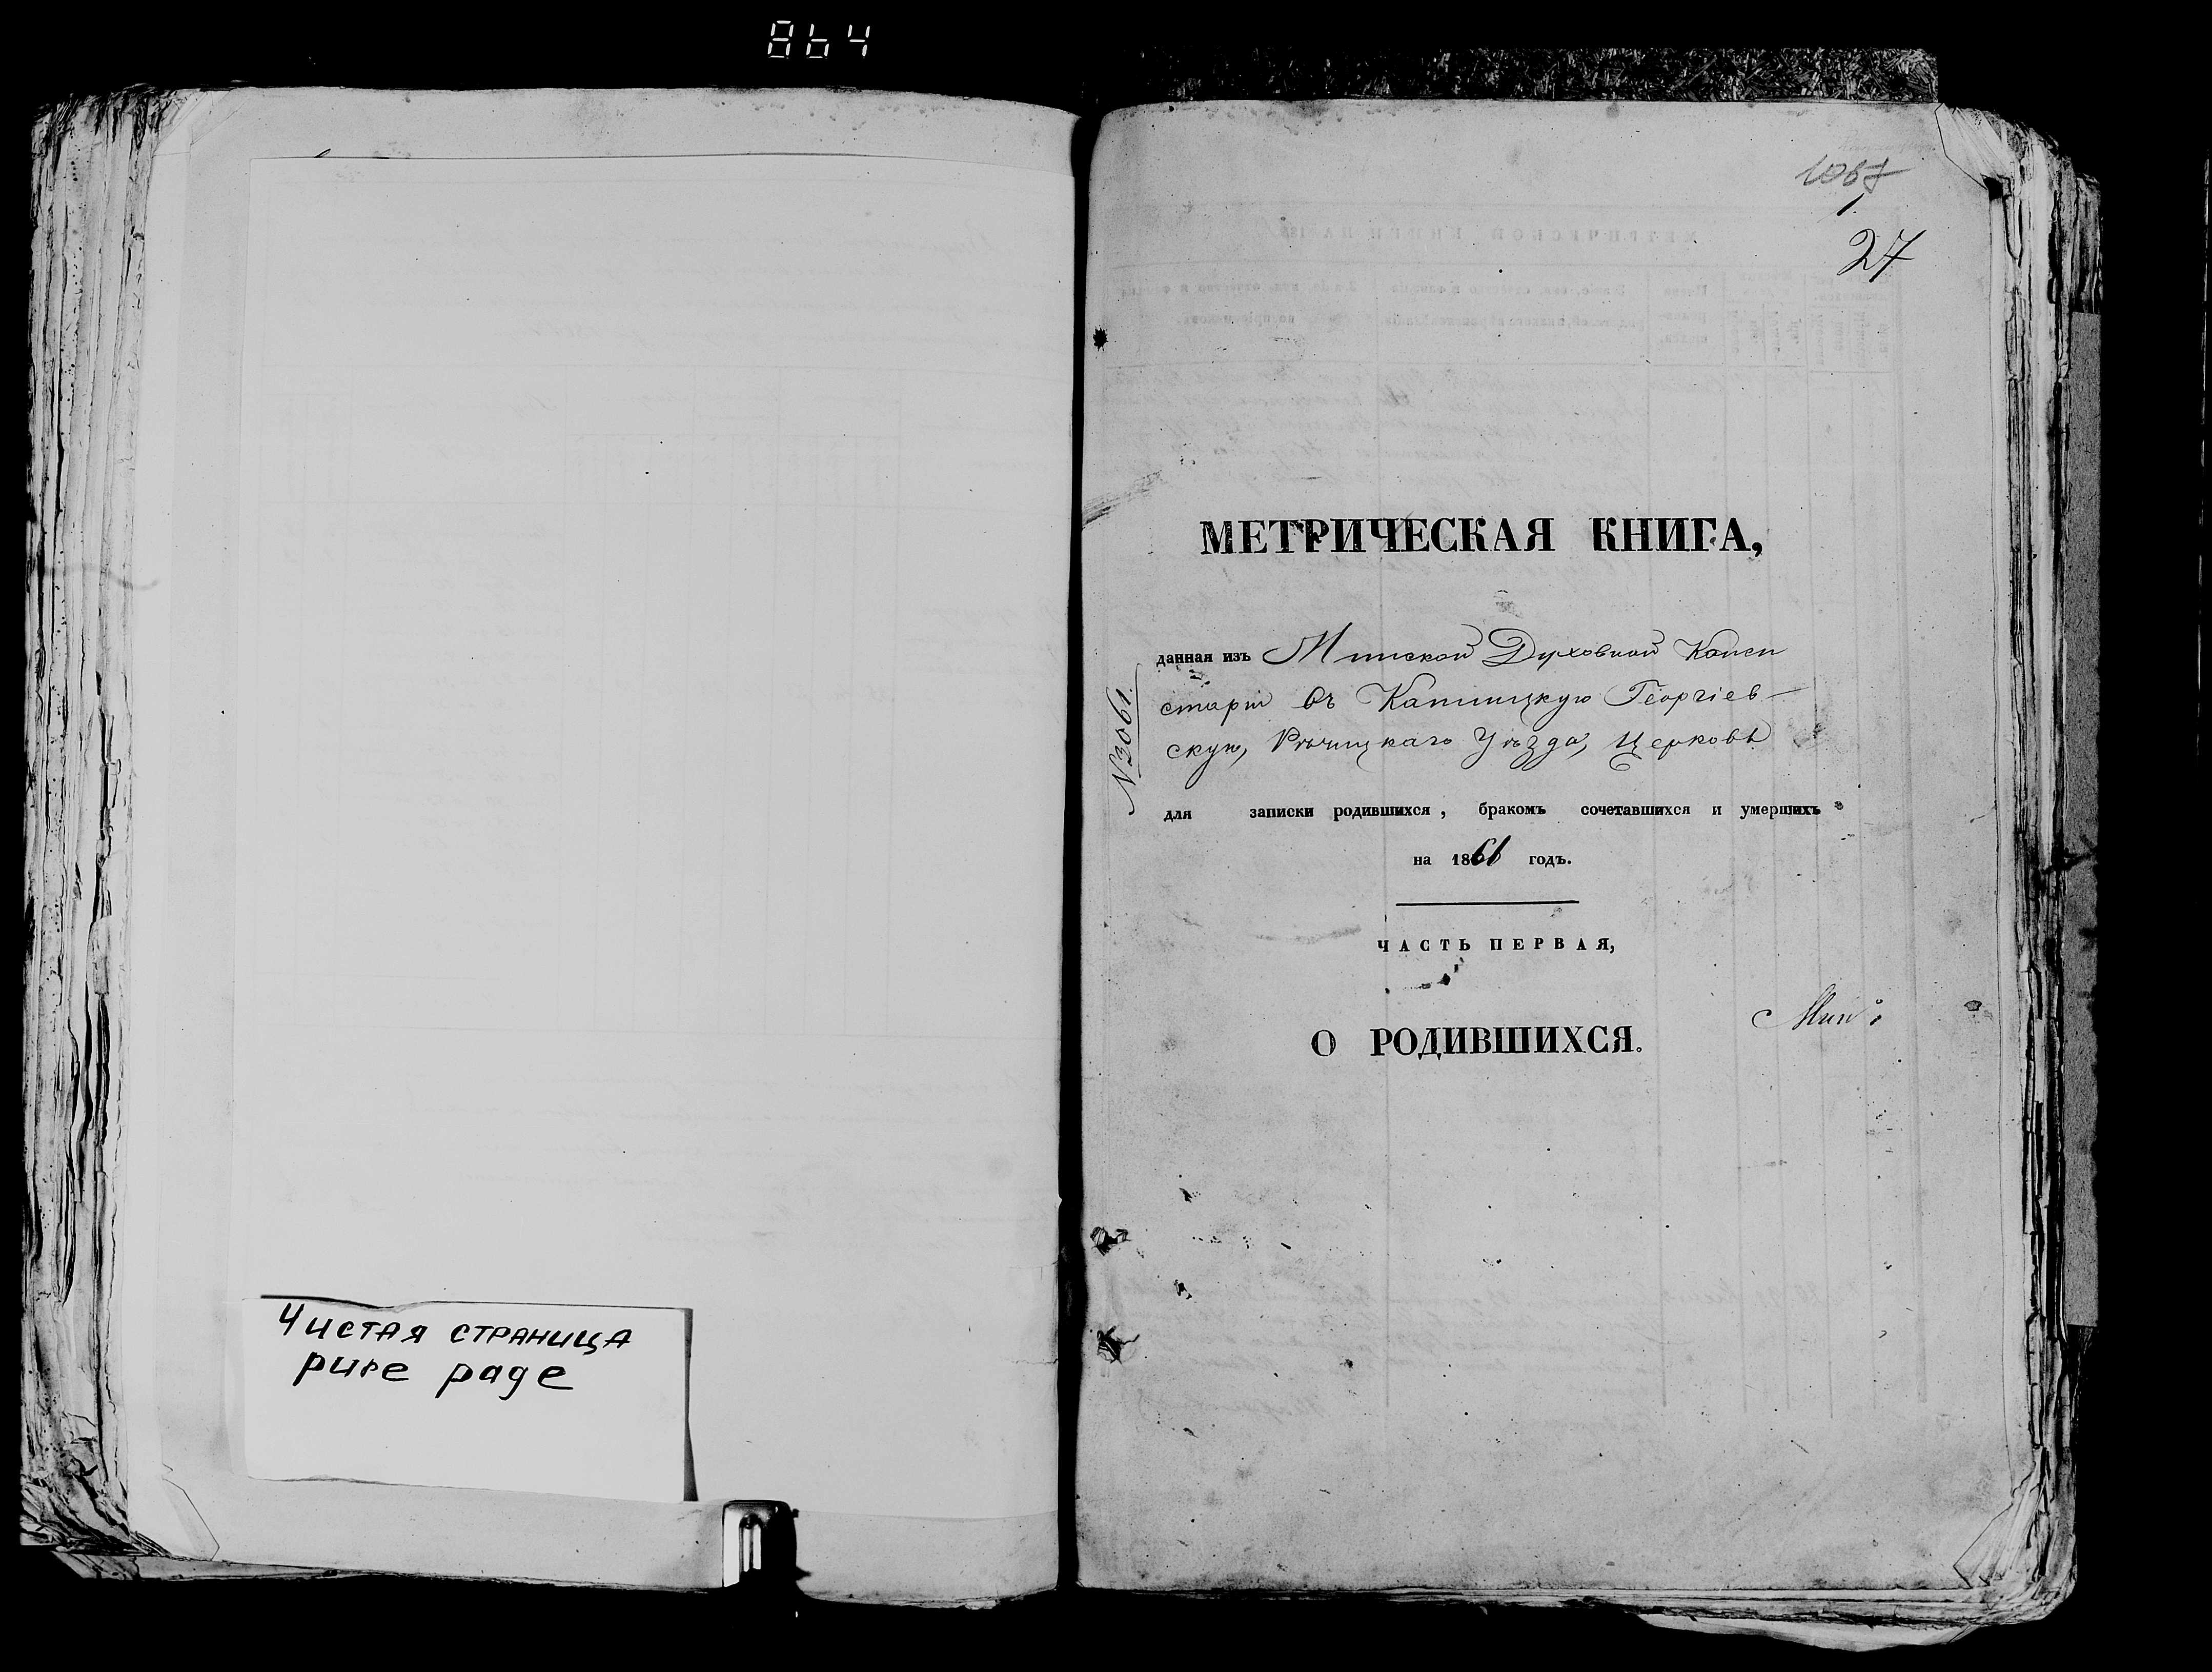 864
Чистая страница
pure page
1067
27
МЕТРИЧЕСКАЯ КНИГА,
данная изъ Минской Духовной Конси
сторіи въ Капличкую Георгіев-
скую, Рѣчицкаго Уѣзда, Церковь
№ 3061.
для записки родившихся, бракомъ сочетавшихся и умершихъ
на 1861 годъ.
ЧАСТЬ ПЕРВАЯ,
О РОДИВШИХСЯ.